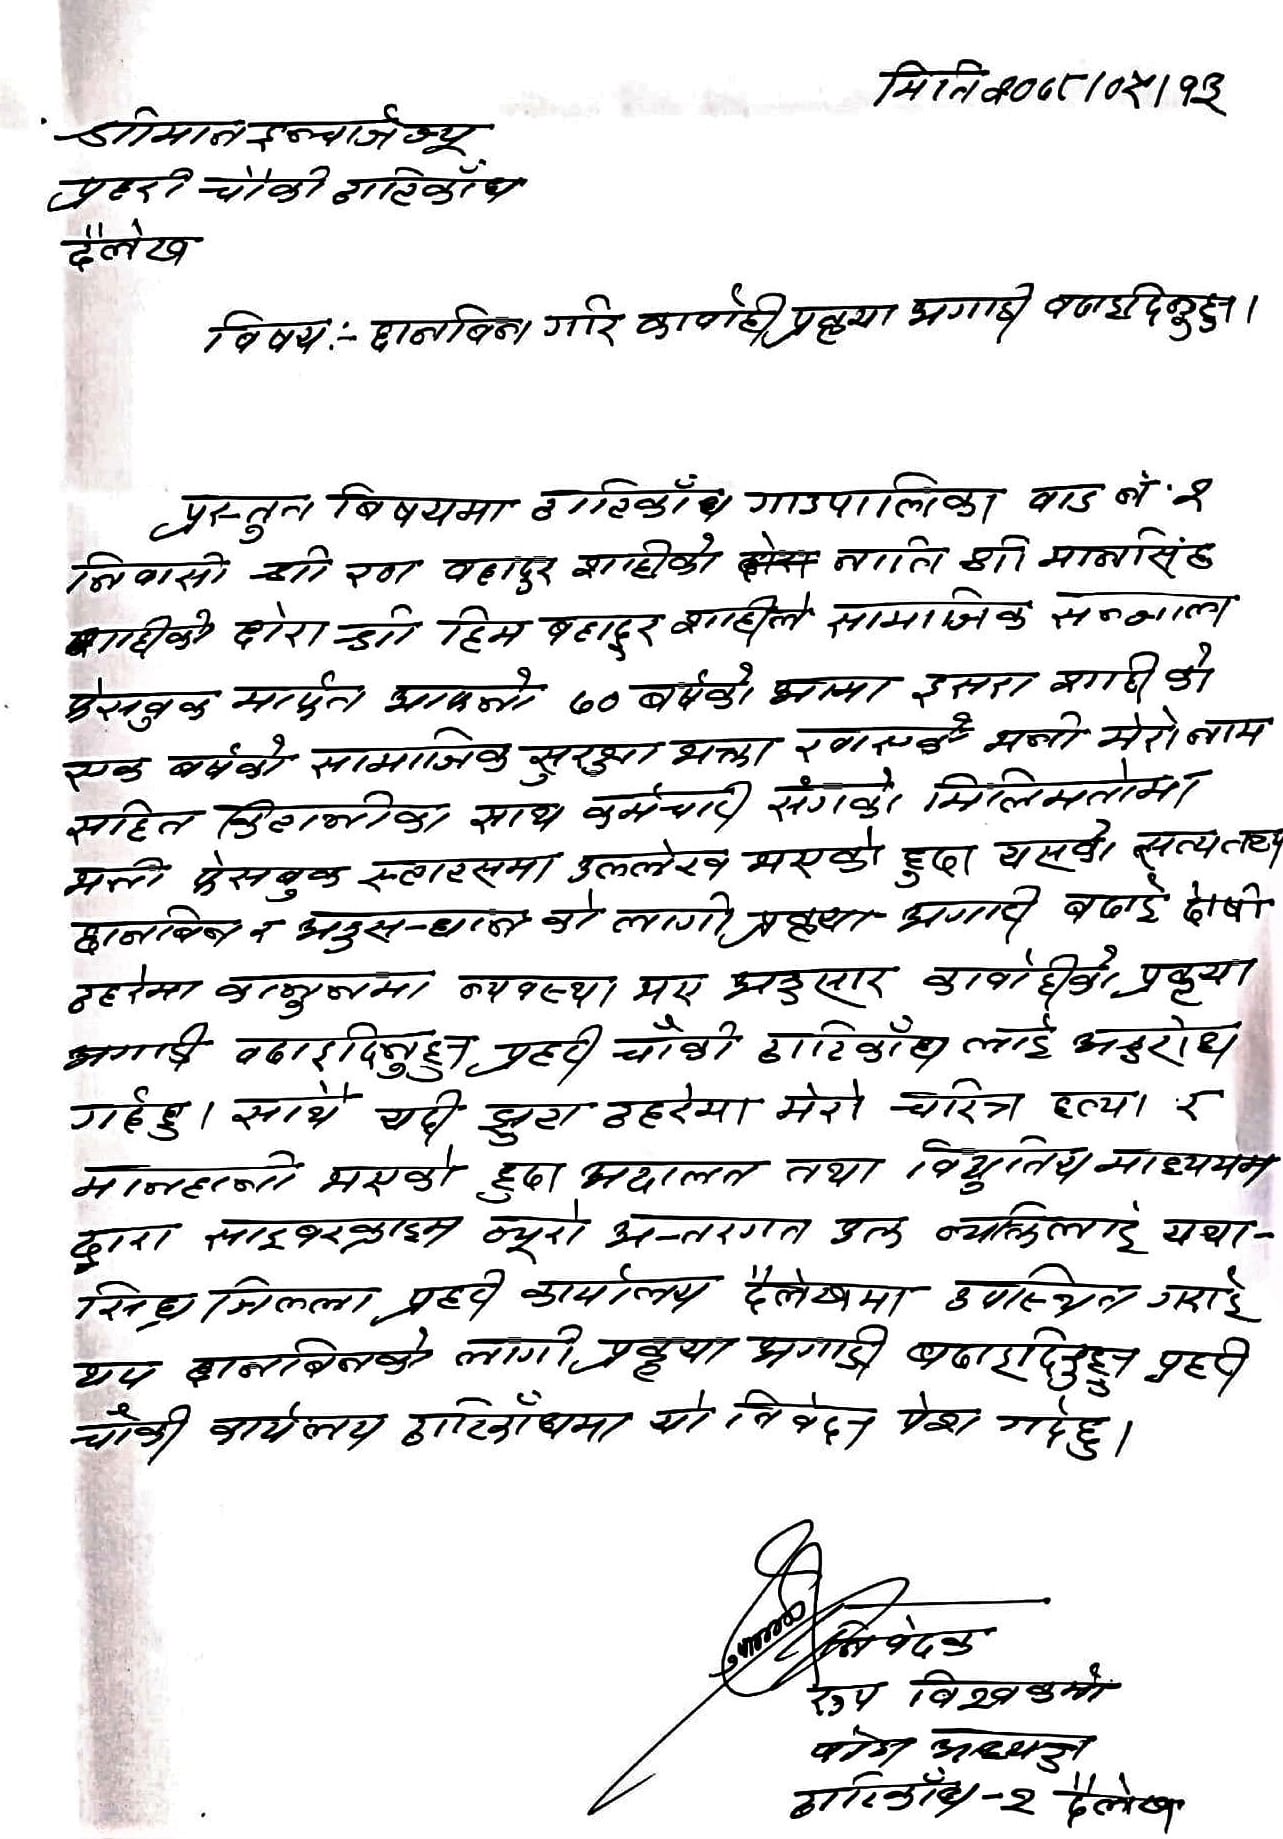 मिति २०७८।०५।१३
श्रीमान इन्चार्ज ज्यू
प्रहरी चौकी ठाटिकाँध
दैलेख
विषय:- छानबिन गरि कार्वाही प्रकृया अगाडी बढाइदिनुहुन।
प्रस्तुत बिषयमा ठाटिकाँध गाउपालिका वाड नं २
निवासी श्री रन बहादुर शाहीको नाति श्री मानसिंह
शाहीको छोरा श्री हिम बहादुर शाहीले सामाजिक सन्जाल
फेसबुक मार्फत आफ्नो ७० बर्षको आमा इसरा शाहीको
एक बर्षको सामाजिक सुरक्षा भत्ता खाएको भनी मेरो नाम
सहित किटानीका साथ कर्मचारी संगको मिलिमतोमा
भनी फेसबुक स्टाटसमा उल्लेख भएको हुदा यसको सत्यतथ्य
छानबिन र अनुसन्धान को लागी प्रकृया अगाडी बढाई दोषी
ठहरेमा कानुनमा व्यवस्था भए अनुसार कार्वाहीको प्रकृया
अगाडी बढाइदिनुहुन प्रहरी चौकी ठाटिकाँध लाई अनुरोध
गर्दछु। साथै यदी झुटा ठहरेमा मेरो चरित्र हत्या र
मानहानी भएको हुदा अदालत तथा विद्युतिय माध्ययम
द्वारा साइबरक्राइम ब्यूरो अन्तरगत उक्त व्यक्तिलाई यथा-
सिघ्र जिल्ला प्रहरी कार्यालय दैलेखमा उपस्थित गराई
थप छानबिनको लागी प्रकृया अगाडी बढाइदिनुहुन प्रहरी
चौकी कार्यलय ठाटिकाँधमा यो निवेदन पेश गर्दछु।
निवेदक
रुप विश्वकर्मा
वार्डा अध्यक्ष
ठाटिकाँध-२ दैलेख